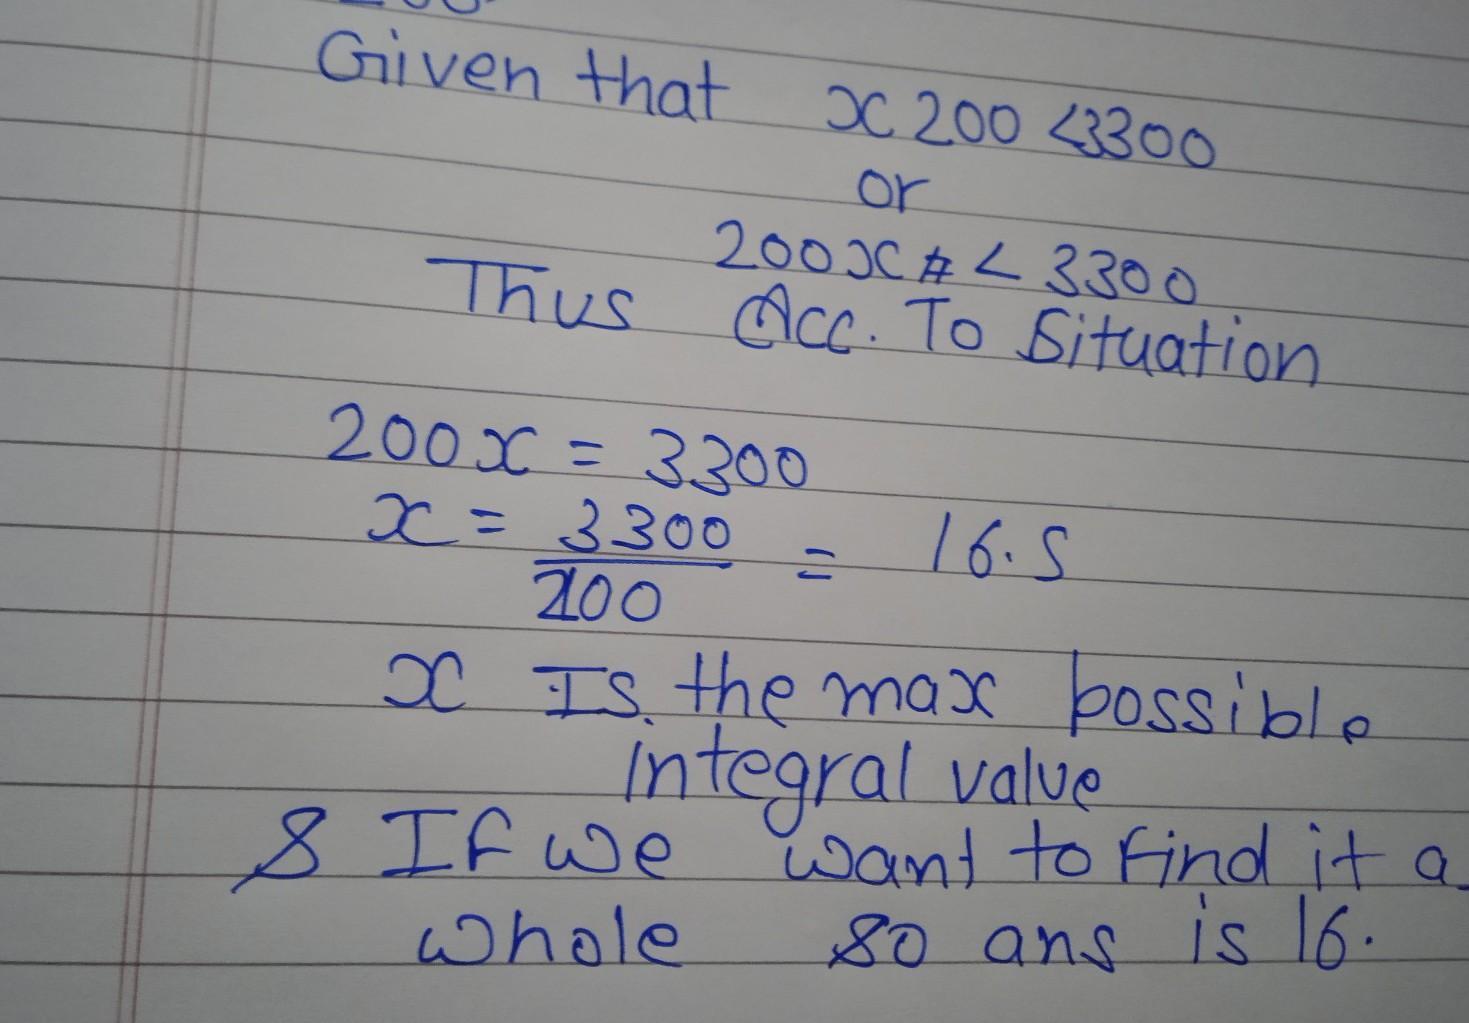 Given that x 200 <3300
or
200x # < 3300
Thus Acc. To Situation
200x = 3300
x = 3300 / 200 = 16.5
x Is. the max possible
integral value
& If we want to find it a
whole so ans is 16.